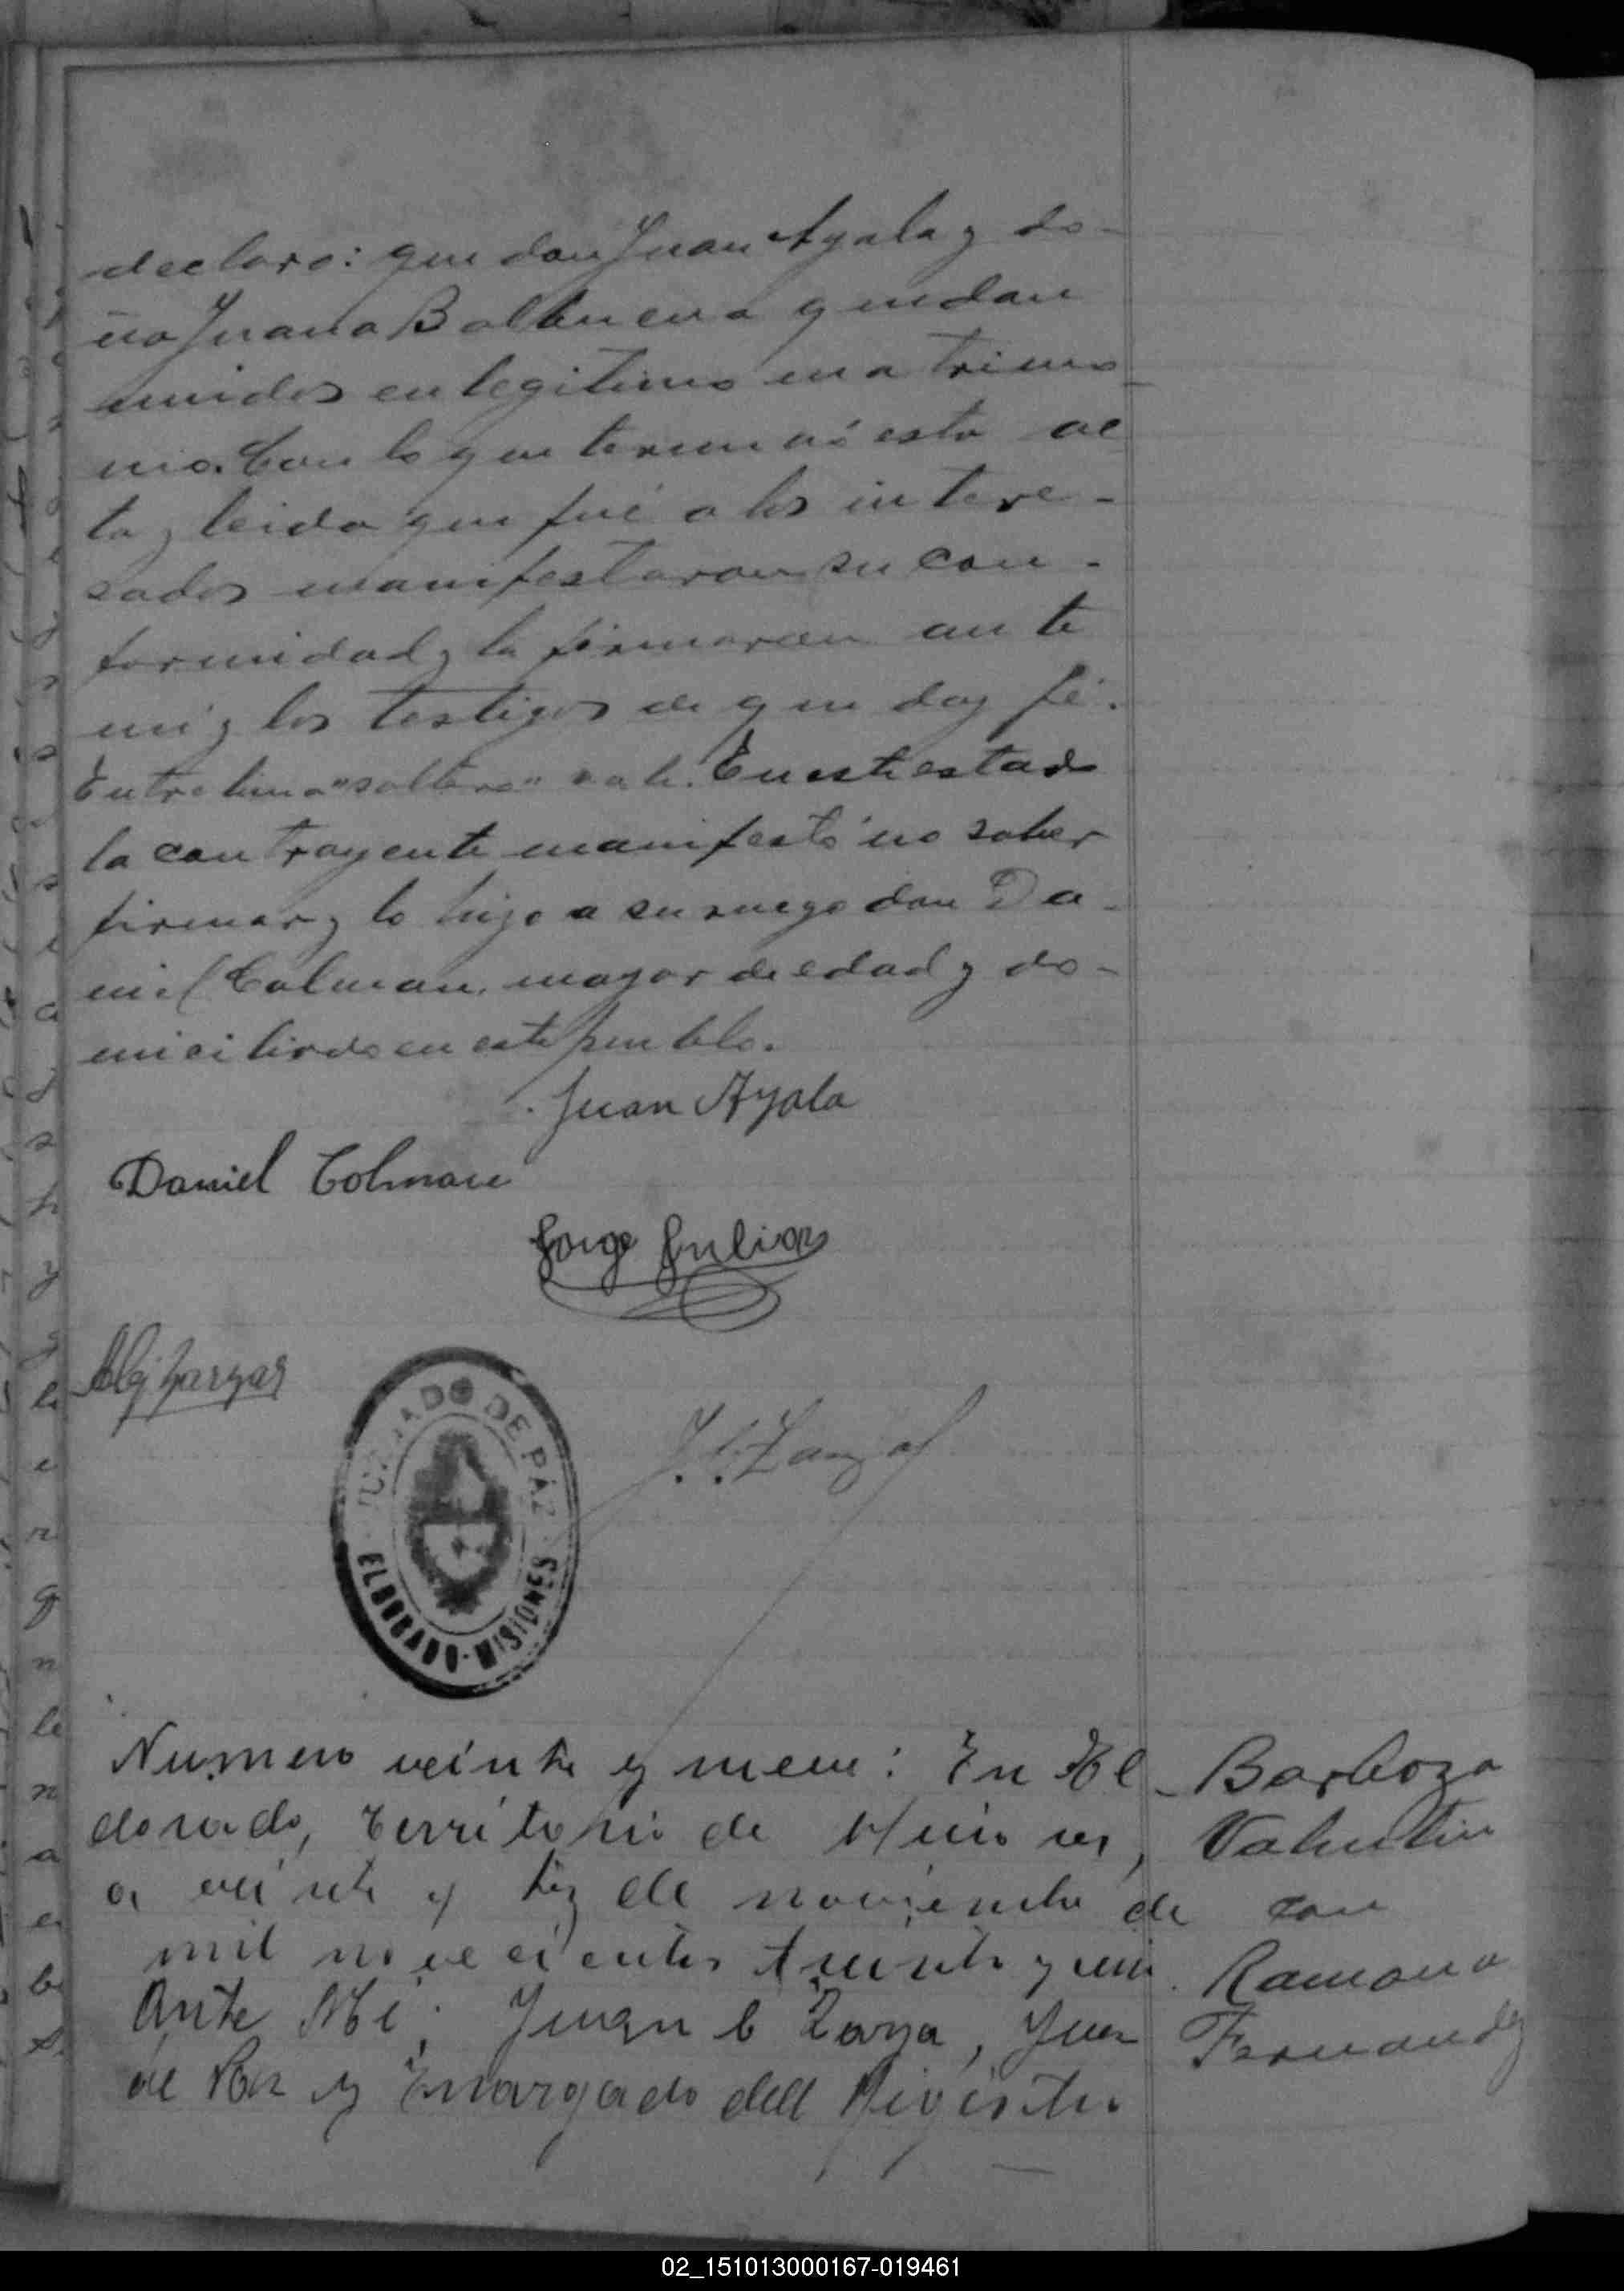 declaro: que don Juan Ayala y do-
ña Juana Balbuena quedan
unidos en legitimo matrimo-
nio. Con lo que terminó esta ac
ta y leida que fué a los intere-
sados manifestaron su con-
formidad y la firmaron ante
mi y los testigos de que doy fé.
Entre linea "soltero" vale. En este estado
la contrayente manifestó no saber
firmar y lo hizo a su ruego don Da-
niel Colman, mayor de edad y do-
miciliado en este pueblo.
Juan Ayala
Daniel Colman
Jorge Julian
JUZGADO DE PAZ
ELDORADO-MISIONES
Numero veinte y nueve: En El-
dorado, Territorio de Misiones,
a veinte y tez de noviembre de
mil novecientos treinta y uno.
Ante Mi, Juan C Zaya, Juez
de Paz y Encargado dell Registro
Barboza
Valentin
con
Ramona
Fernandez
02_151013000167-019461